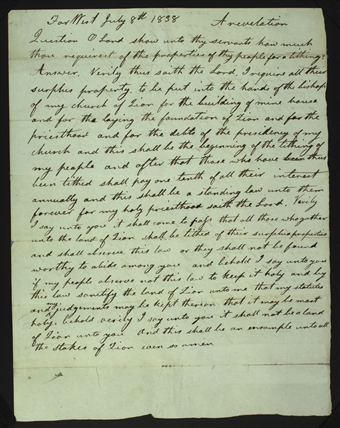 Far West July 8th 1838 A revelation
Question O Lord show unto thy servants how much
thou requirest of the properties of thy people for a tithing?
Answer. Verily thus saith the Lord, I require all their
surplus property to be put into the hands of the bishop
of my church of Zion for the building of mine house
and for the laying the foundation of Zion and for the
priesthood and for the debts of the presidency of my
church and this shall be the beginning of the tithing of
my people and after that those who have thus
been tithed shall pay one tenth of all their interest
annually and this shall be a standing law unto them
forever for my holy priesthood saith the Lord. Verily
I say unto you it shall come to pass that all those who gather
unto the land of Zion shall be tithed of their surplus properties
and shall observe this law or they shall not be found
worthy to abide among you and behold I say unto you
if my people observe not this law to keep it holy and by
this law sanctify the land of Zion unto me that my statutes
and Judgements may be kept thereon that it may be most
holy behold verily I say unto you it shall not be a land
of Zion unto you And this shall be an ensample unto all
the stakes of Zion even so amen